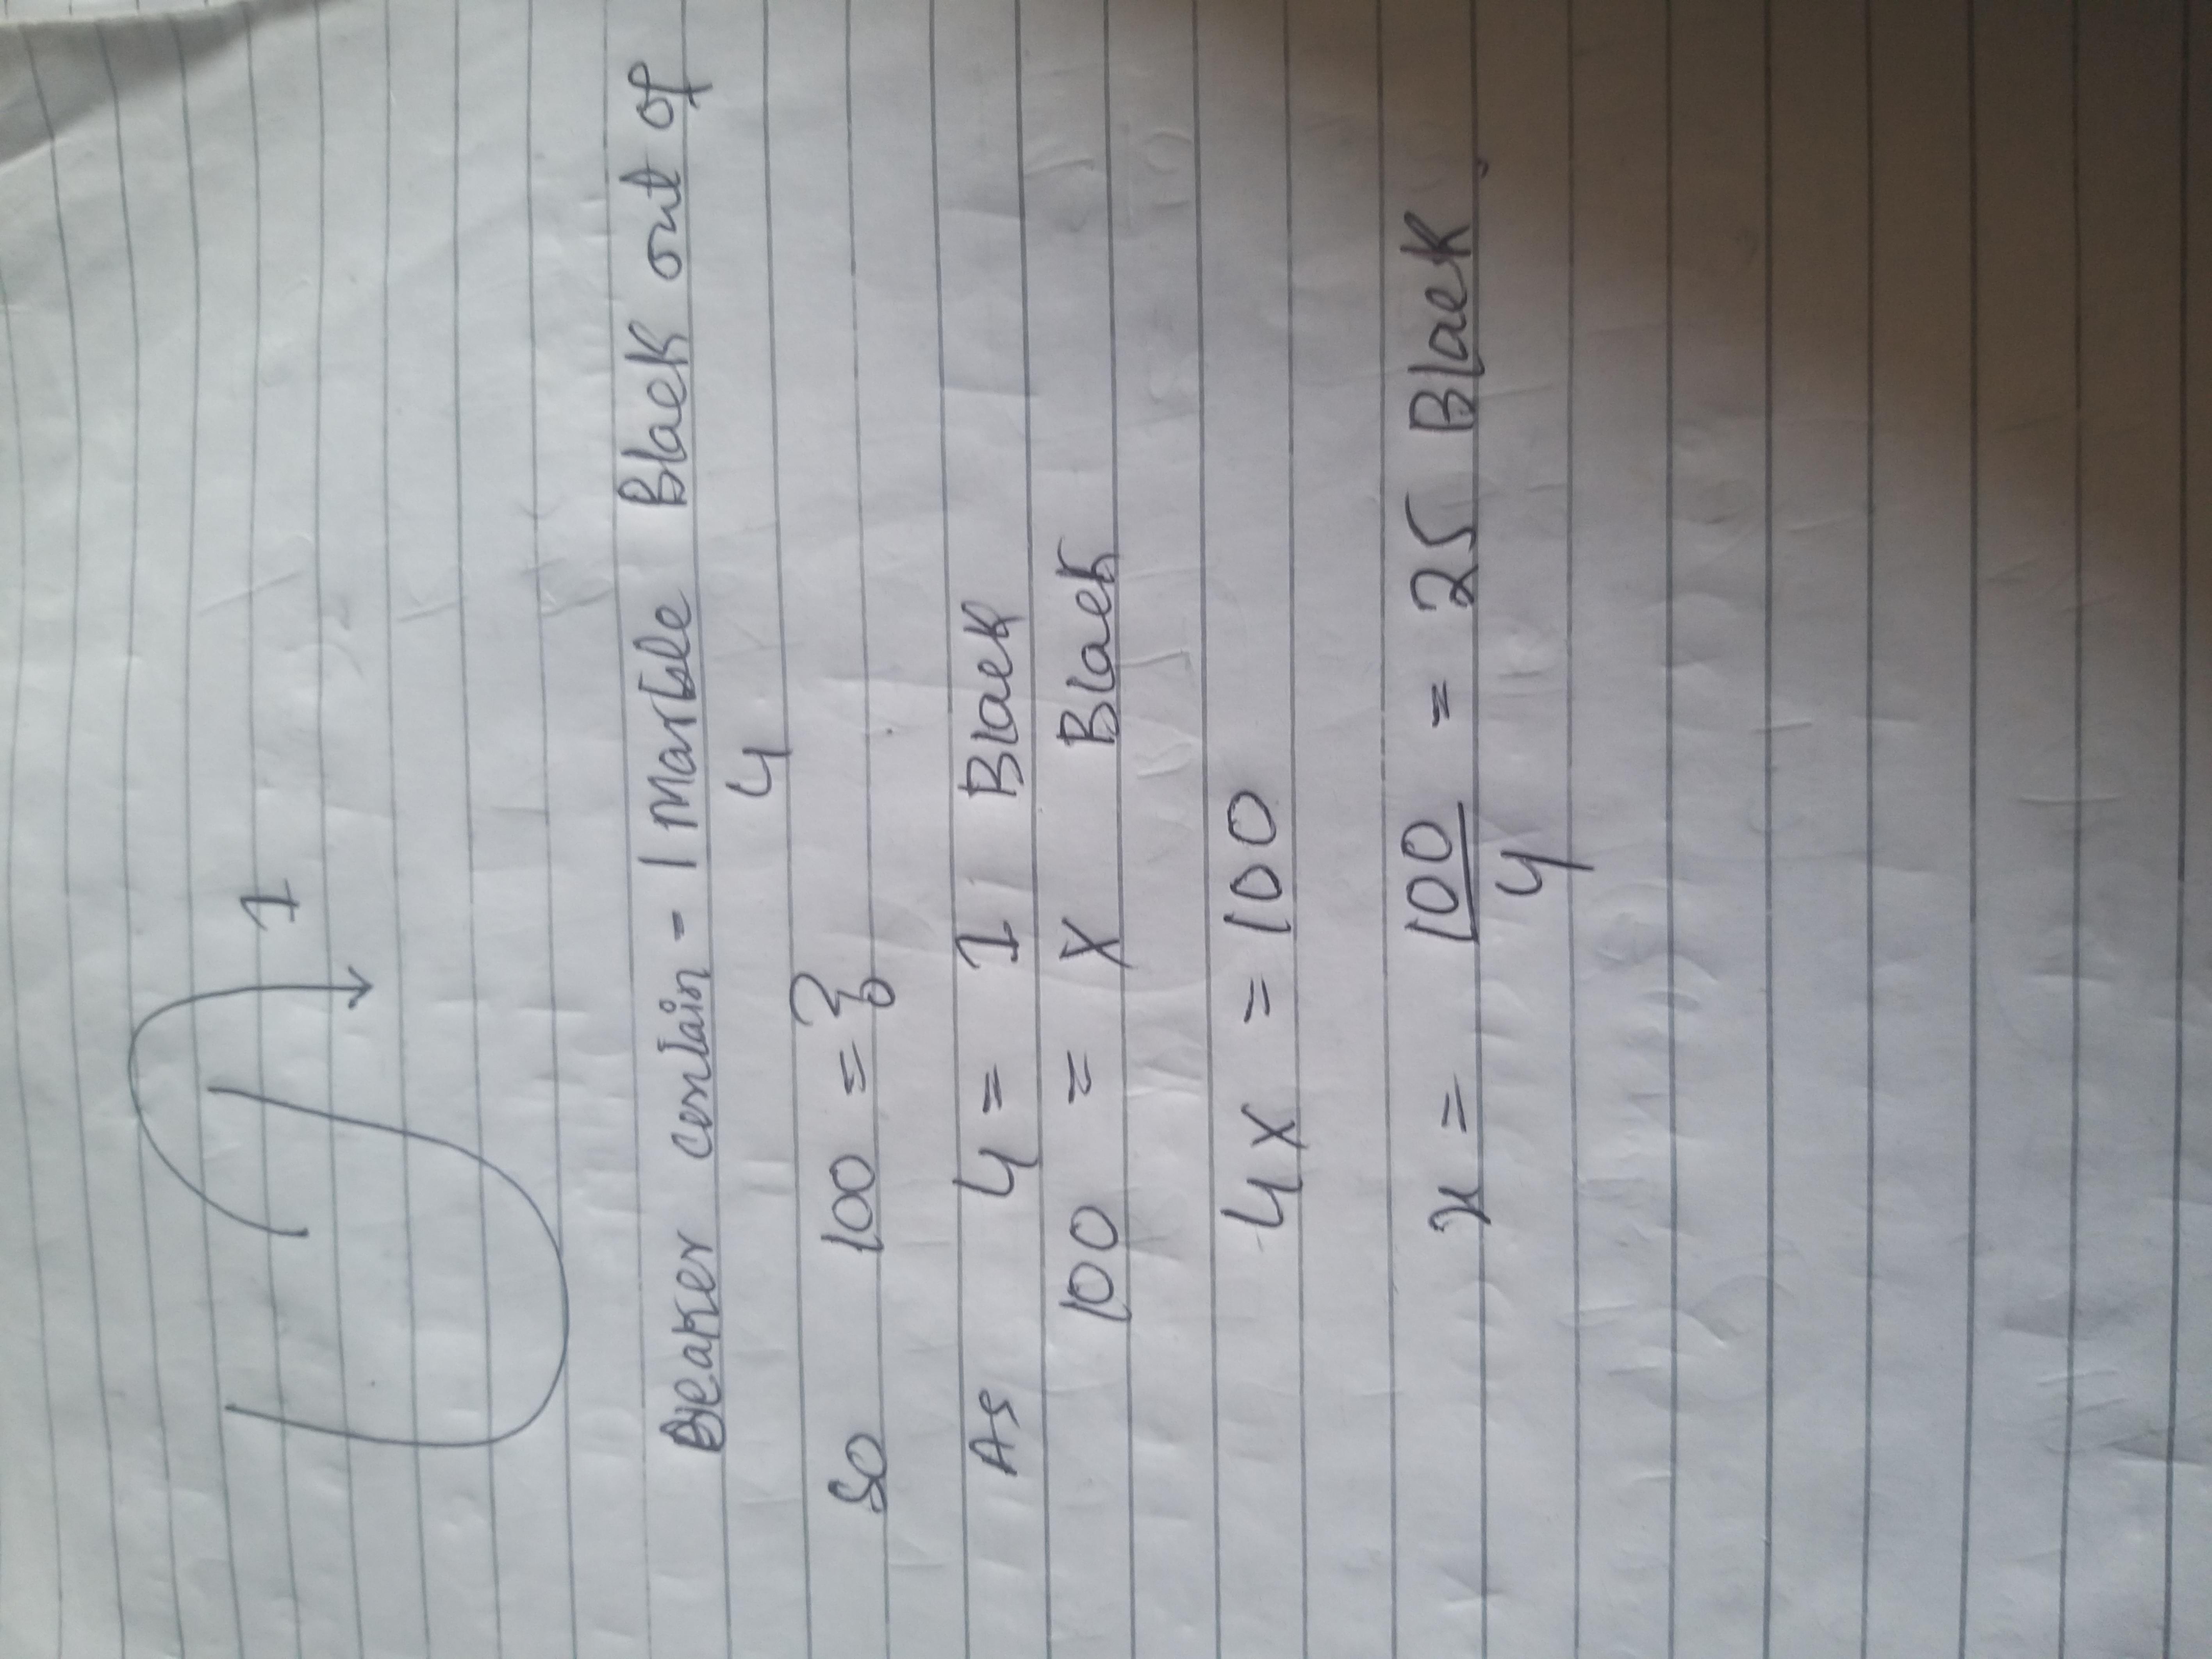 1
Beaker contain - 1 Marble Black out of
4
SO 100 = ?
As 4 = 1 Black
100 = X Black
4X = 100
x = 100/4 = 25 Black